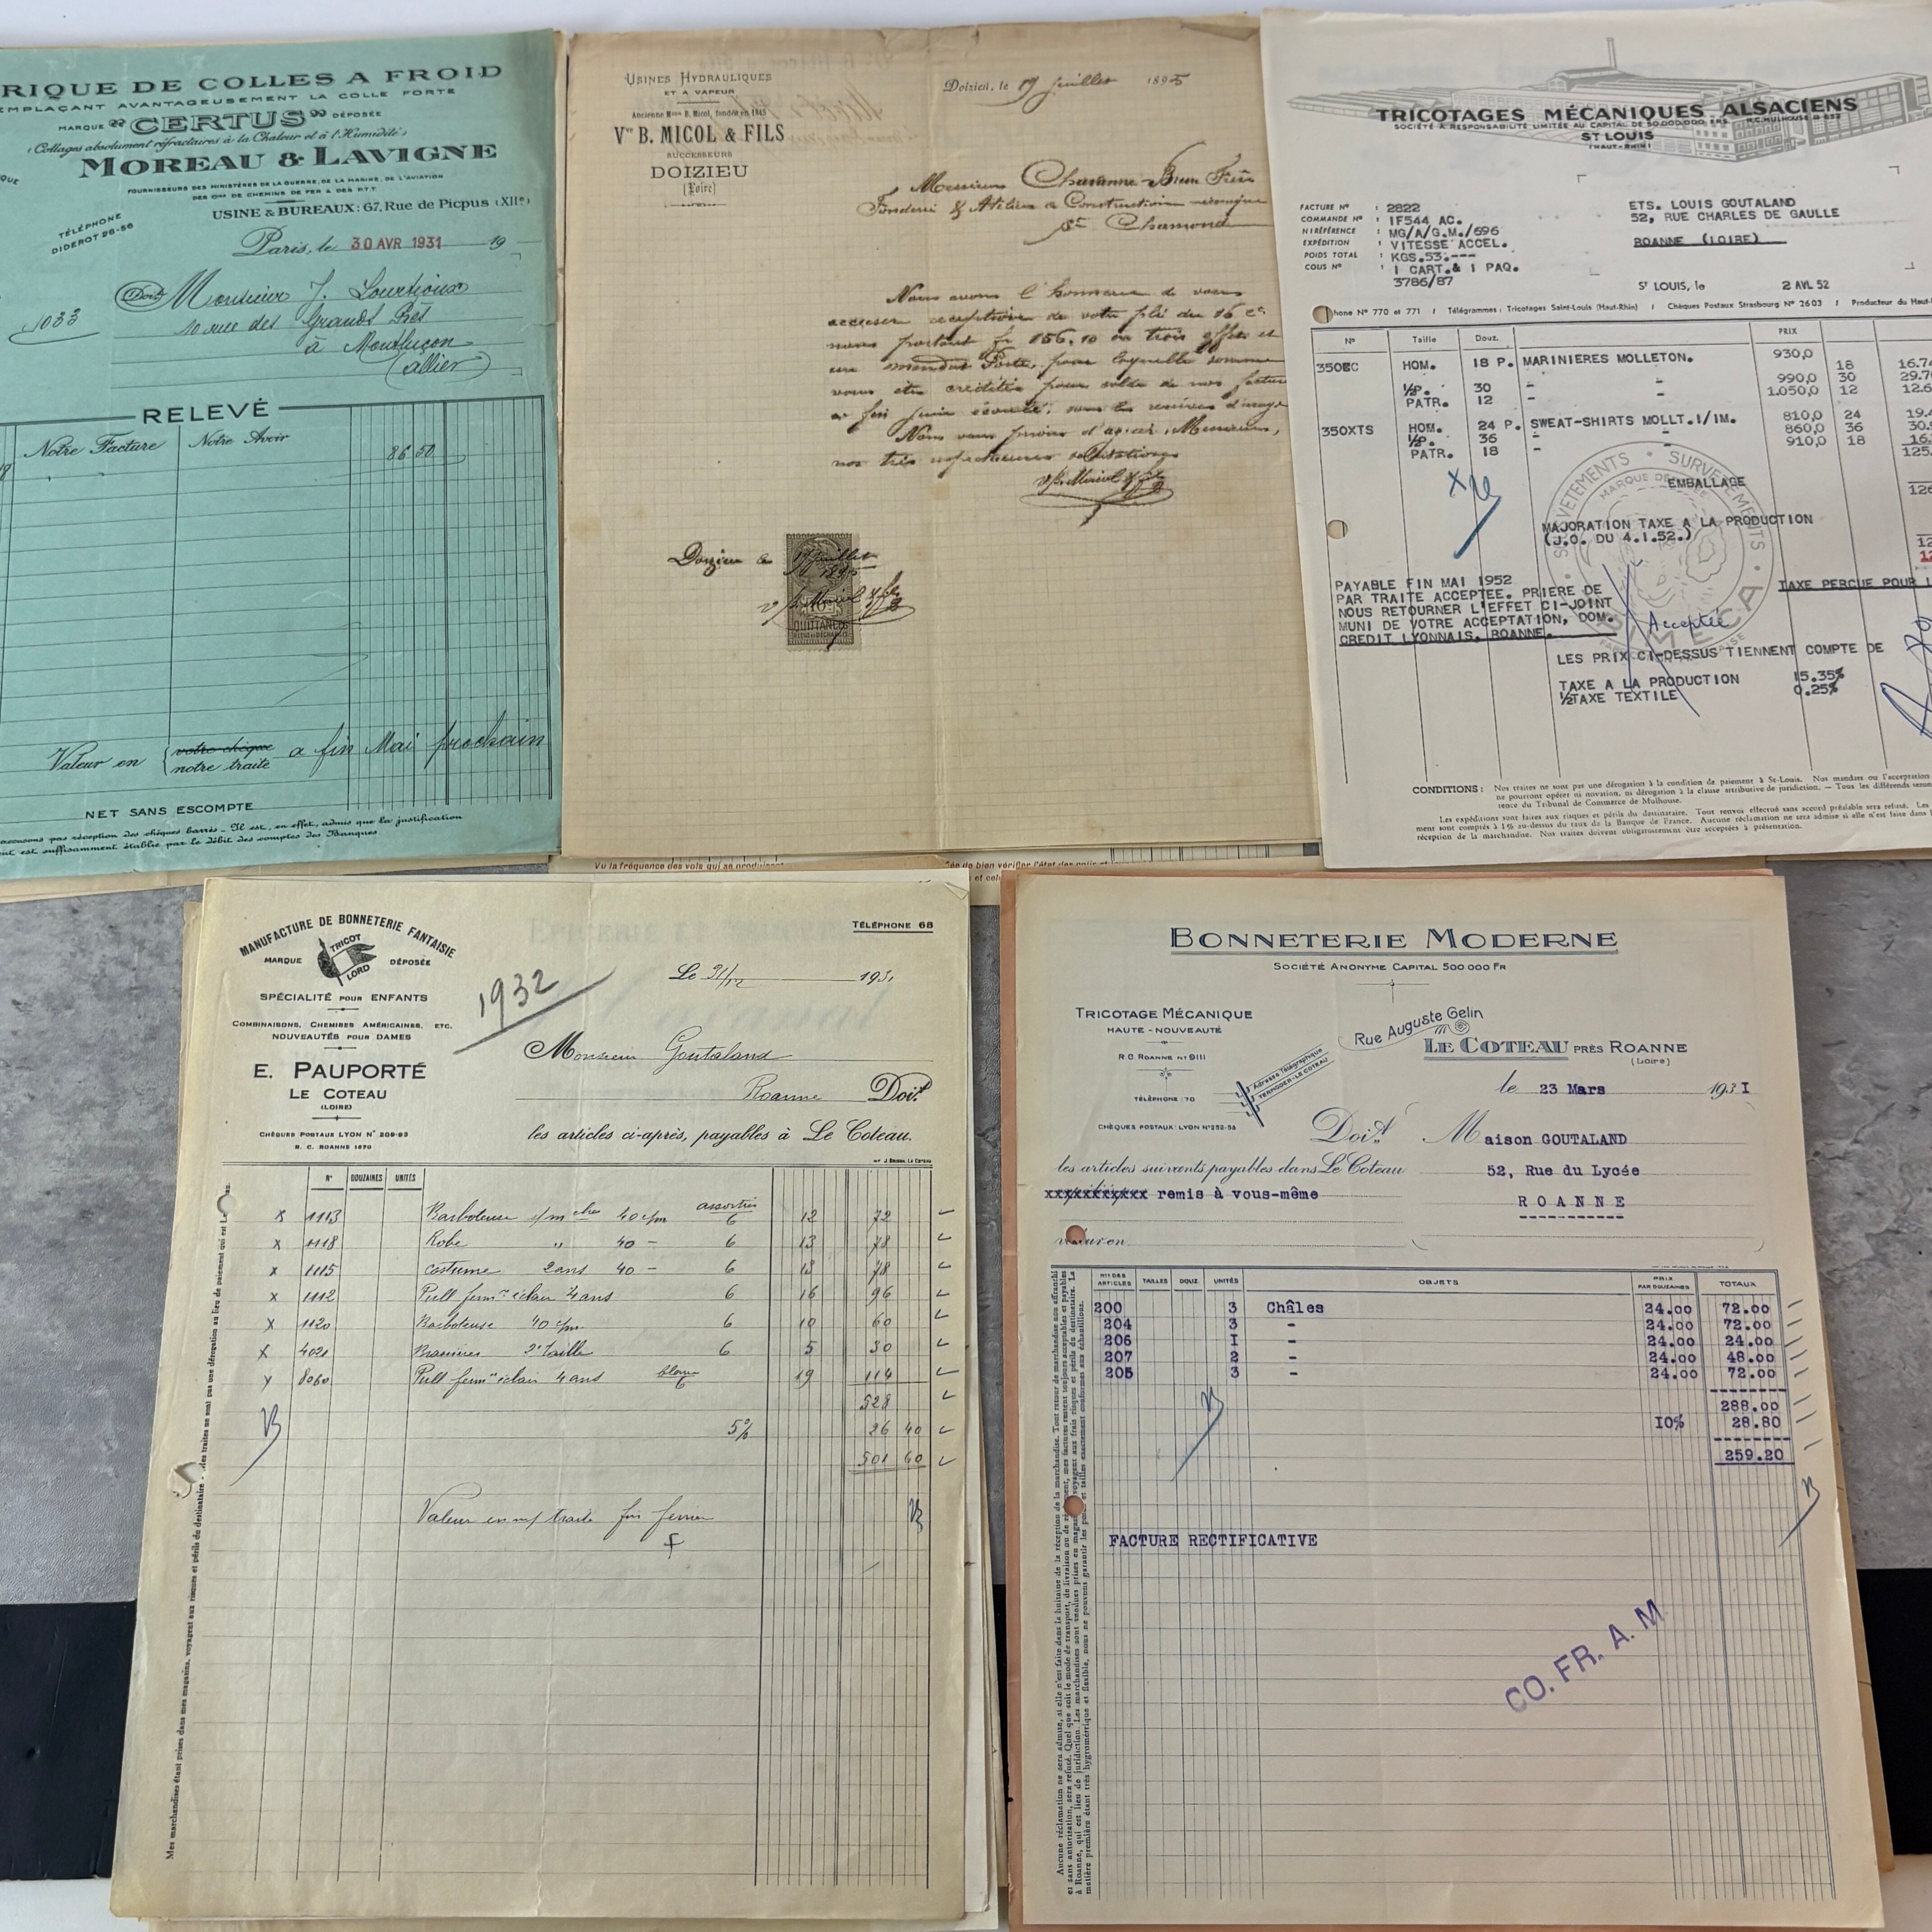 RIQUE DE COLLES A FROID
EMPLAÇANT AVANTAGEUSEMENT LA COLLE FORTE
MARQUE "CERTUS" DÉPOSÉE
(Collages absolument réfractaires à la Chaleur et à l'Humidité)
MOREAU & LAVIGNE
FOURNISSEURS DES MINISTÈRES DE LA GUERRE, DE LA MARINE, DE L'AVIATION
DES CIES DE CHEMINS DE FER & DES P.T.T.
USINE & BUREAUX: 67, Rue de Picpus (XIIe)
TÉLÉPHONE
DIDEROT 26-56
Paris, le 30 AVR 1931 19
Doit Monsieur J. Lourtioux
10 rue des Grands Prés
à Montluçon
(Allier)
1033
RELEVÉ
Notre Facture Notre Avoir
86 50
Valeur en votre chèque
notre traite a fin Mai prochain
NET SANS ESCOMPTE
accusons pas réception des chèques barrés. Il est, en effet, admis que la justification
ent est suffisamment établie par le débit des comptes des Banques
USINES HYDRAULIQUES
ET A VAPEUR
Ancienne Mson B. Micol, fondée en 1845
Vve B. MICOL & FILS
SUCCESSEURS
DOIZIEU
(Loire)
Doizieu, le 17 juillet 1895
Messieurs Chavanne-Brun Frères
Fonderie & Ateliers de Construction mécanique
St Chamond
Nous avons l'honneur de vous
accuser réception de votre pli du 16 ct
nous portant fr 156.10 en trois effets et
un mandat Poste, pour laquelle somme
vous êtes crédités pour solde de nos factures
Nous vous prions d'agréer, Messieurs,
nos très respectueuses salutations
Vve Micol & fils
Doizieu le 17 juillet
1895
Vve Micol & fils
10c
QUITTANCES
TRICOTAGES MÉCANIQUES ALSACIENS
SOCIÉTÉ A RESPONSABILITÉ LIMITÉE AU CAPITAL DE 50.000.000 FRS R.C. MULHOUSE B 632
ST LOUIS
(HAUT-RHIN)
FACTURE No : 2822
COMMANDE No : IF544 AC.
N/RÉFÉRENCE : MG/A/G.M./696
EXPÉDITION : VITESSE ACCEL.
POIDS TOTAL : KGS.53.---
COLIS No : 1 CART.& 1 PAQ.
3786/87
ETS. LOUIS GOUTALAND
52, RUE CHARLES DE GAULLE
ROANNE (LOIRE)
ST LOUIS, le 2 AVL 52
hone No 770 et 771 / Télégrammes : Tricotages Saint-Louis (Haut-Rhin) / Chèques Postaux Strasbourg No 2603 / Producteur du Haut-
No Taille Douz. PRIX
350EC HOM. 18 P. MARINIERES MOLLETON. 930,0 18 16.74
½P. 30 - - 990,0 30 29.70
PATR. 12 - 1.050,0 12 12.6
350XTS HOM. 24 P. SWEAT-SHIRTS MOLLT.I/IM. 810,0 24 19.4
½P. 36 - 860,0 36 30.9
PATR. 18 - 910,0 18 16.
125.
SOUS-VÊTEMENTS • SURVÊTEMENTS
MARQUE DEPOSEE
EMBALLAGE
126
MAJORATION TAXE A LA PRODUCTION
(J.O. DU 4.1.52.)
12
PAYABLE FIN MAI 1952
PAR TRAITE ACCEPTEE. PRIERE DE
NOUS RETOURNER L'EFFET CI-JOINT
MUNI DE VOTRE ACCEPTATION, DOM.
CREDIT LYONNAIS, ROANNE.
TAXE PERCUE POUR L
Acceptée
LES PRIX CI-DESSUS TIENNENT COMPTE DE
TAXE A LA PRODUCTION 15.35%
½TAXE TEXTILE 0.25%
CONDITIONS : Nos traites ne sont pas une dérogation à la condition de paiement à St-Louis. Nos mandats ou l'acceptation
ne pourront opérer ni novation, ni dérogation à la clause attributive de juridiction. — Tous les différends seront
rence du Tribunal de Commerce de Mulhouse.
Les expéditions sont faites aux risques et périls du destinataire. Tout renvoi effectué sans accord préalable sera refusé. Les
ment sont comptés à 1% au-dessus du taux de la Banque de France. Aucune réclamation ne sera admise si elle n'est faite dans
réception de la marchandise. Nos traites doivent obligatoirement être acceptées à présentation.
Vu la fréquence des vols qui se produisent
sée de bien vérifier l'état des colis et
et celui
MANUFACTURE DE BONNETERIE FANTAISIE
MARQUE TRICOT LORD DÉPOSÉE
SPÉCIALITÉ POUR ENFANTS
COMBINAISONS, CHEMISES AMÉRICAINES, ETC.
NOUVEAUTÉS POUR DAMES
E. PAUPORTÉ
LE COTEAU
(LOIRE)
CHÈQUES POSTAUX LYON No 208-93
R. C. ROANNE 1670
TÉLÉPHONE 68
1932
Le 31/12 193
Monsieur Goutaland
Roanne Doit
les articles ci-après, payables à Le Coteau.
No DOUZAINES UNITÉS
x 1113 Barboteuse 40 c/m assorties 6 12 72
x 1118 Robe " 40 - 6 13 78
x 1115 costume 2 ans 40 - 6 13 78
x 1112 Pull ferm re éclair 4 ans 6 16 96
x 1120 Barboteuse 40 c/m. 6 10 60
x 4020 Brassières 2e taille 6 5 30
y 8060 Pull ferm re éclair 4 ans 6 19 114
528
5% 26 40
501 60
Valeur en m/ traite fin février
Mes marchandises étant prises dans mes magasins, voyagent aux risques et périls du destinataire. Mes traites ne sont pas une dérogation au lieu de paiement qui est Le
BONNETERIE MODERNE
SOCIÉTÉ ANONYME CAPITAL 500 000 FR
TRICOTAGE MÉCANIQUE
HAUTE-NOUVEAUTÉ
R.C. ROANNE No 9111
TÉLÉPHONE : 70
CHÈQUES POSTAUX : LYON No 252-58
Adresse Télégraphique
TERMODER-LE COTEAU
Rue Auguste Gelin
LE COTEAU PRÈS ROANNE
(Loire)
le 23 Mars 1931
Doit Maison GOUTALAND
les articles suivants payables dans Le Coteau 52, Rue du Lycée
xxxxxxxxxxx remis à vous-même ROANNE
valeur en
Nos DES ARTICLES TAILLES DOUZ. UNITÉS OBJETS PRIX PAR DOUZAINES TOTAUX
200 3 Châles 24.00 72.00
204 3 - 24.00 72.00
206 I - 24.00 24.00
207 2 - 24.00 48.00
205 3 - 24.00 72.00
288.00
I0% 28.80
259.20
FACTURE RECTIFICATIVE
CO. FR. A. M